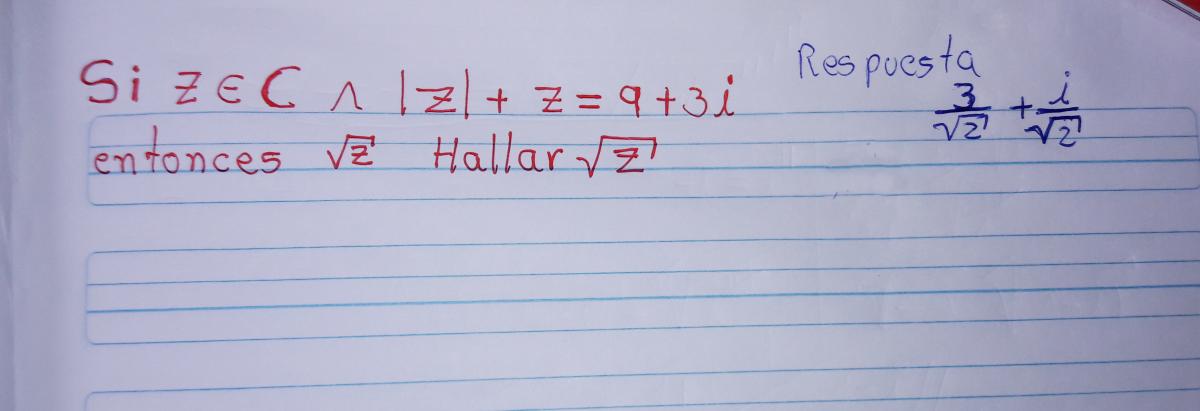 Si z ∈ C ∧ |z| + z = 9 + 3i
entonces √z Hallar √z
Respuesta
3/√2 + i/√2